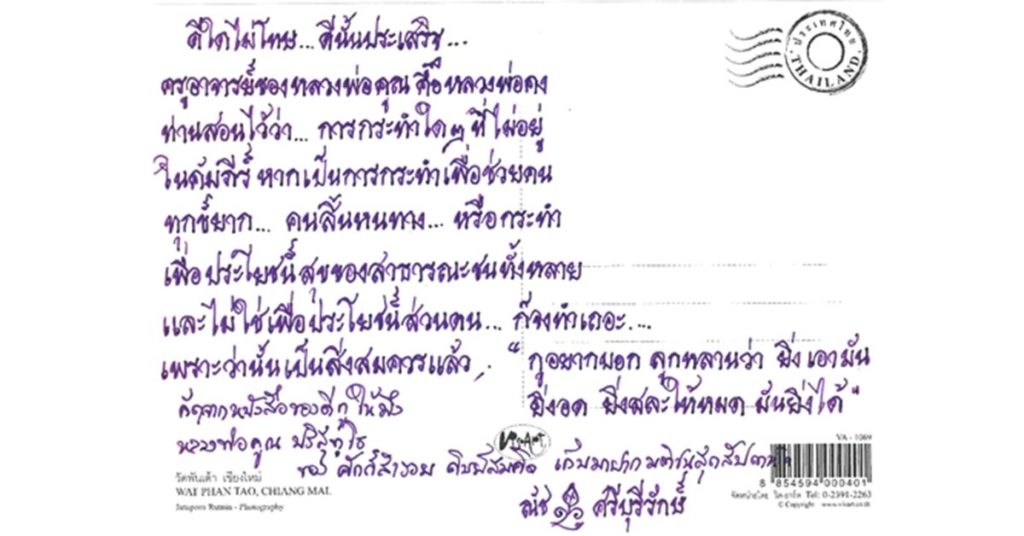 ดีใดไม่โทษ... ดีนั้นประเสริฐ...
ครูอาจารย์ของหลวงพ่อคูณ คือหลวงพ่อคง
ท่านสอนไว้ว่า... การกระทำใดๆ ที่ไม่อยู่
ในคัมภีร์ หากเป็นการกระทำเพื่อช่วยคน
ทุกข์ยาก... คนสิ้นหนทาง... หรือกระทำ
เพื่อประโยชน์สุขของสาธารณะชนทั้งหลาย
และไม่ใช่เพื่อประโยชน์ส่วนตน... ก็จงทำเถอะ....
เพราะว่านั่นเป็นสิ่งสมควรแล้ว,.
"กูอยากบอก ลูกหลานว่า ยิ่งเอามัน
ยิ่งอด ยิ่งสละให้หมด มันยิ่งได้"
คัดจากหนังสือของดีกูให้มึง
หลวงพ่อคูณ ปริสุทฺโธ
ของ ศักดิ์สำรวย เก็บมาฝาก มติชนสุดสัปดาห์
ณัช ศรีบุรีรักษ์
ประเทศไทย
THAILAND
VivArt
วัดพันเต้า เชียงใหม่
WAT PHAN TAO, CHIANG MAI.
Jatuporn Rutnin - Photography
VA - 1069
8 854594 000401
จัดจำหน่ายโดย วิฟ อาร์ต Tel: 0-2391-2263
© Copyright www.vivart.co.th